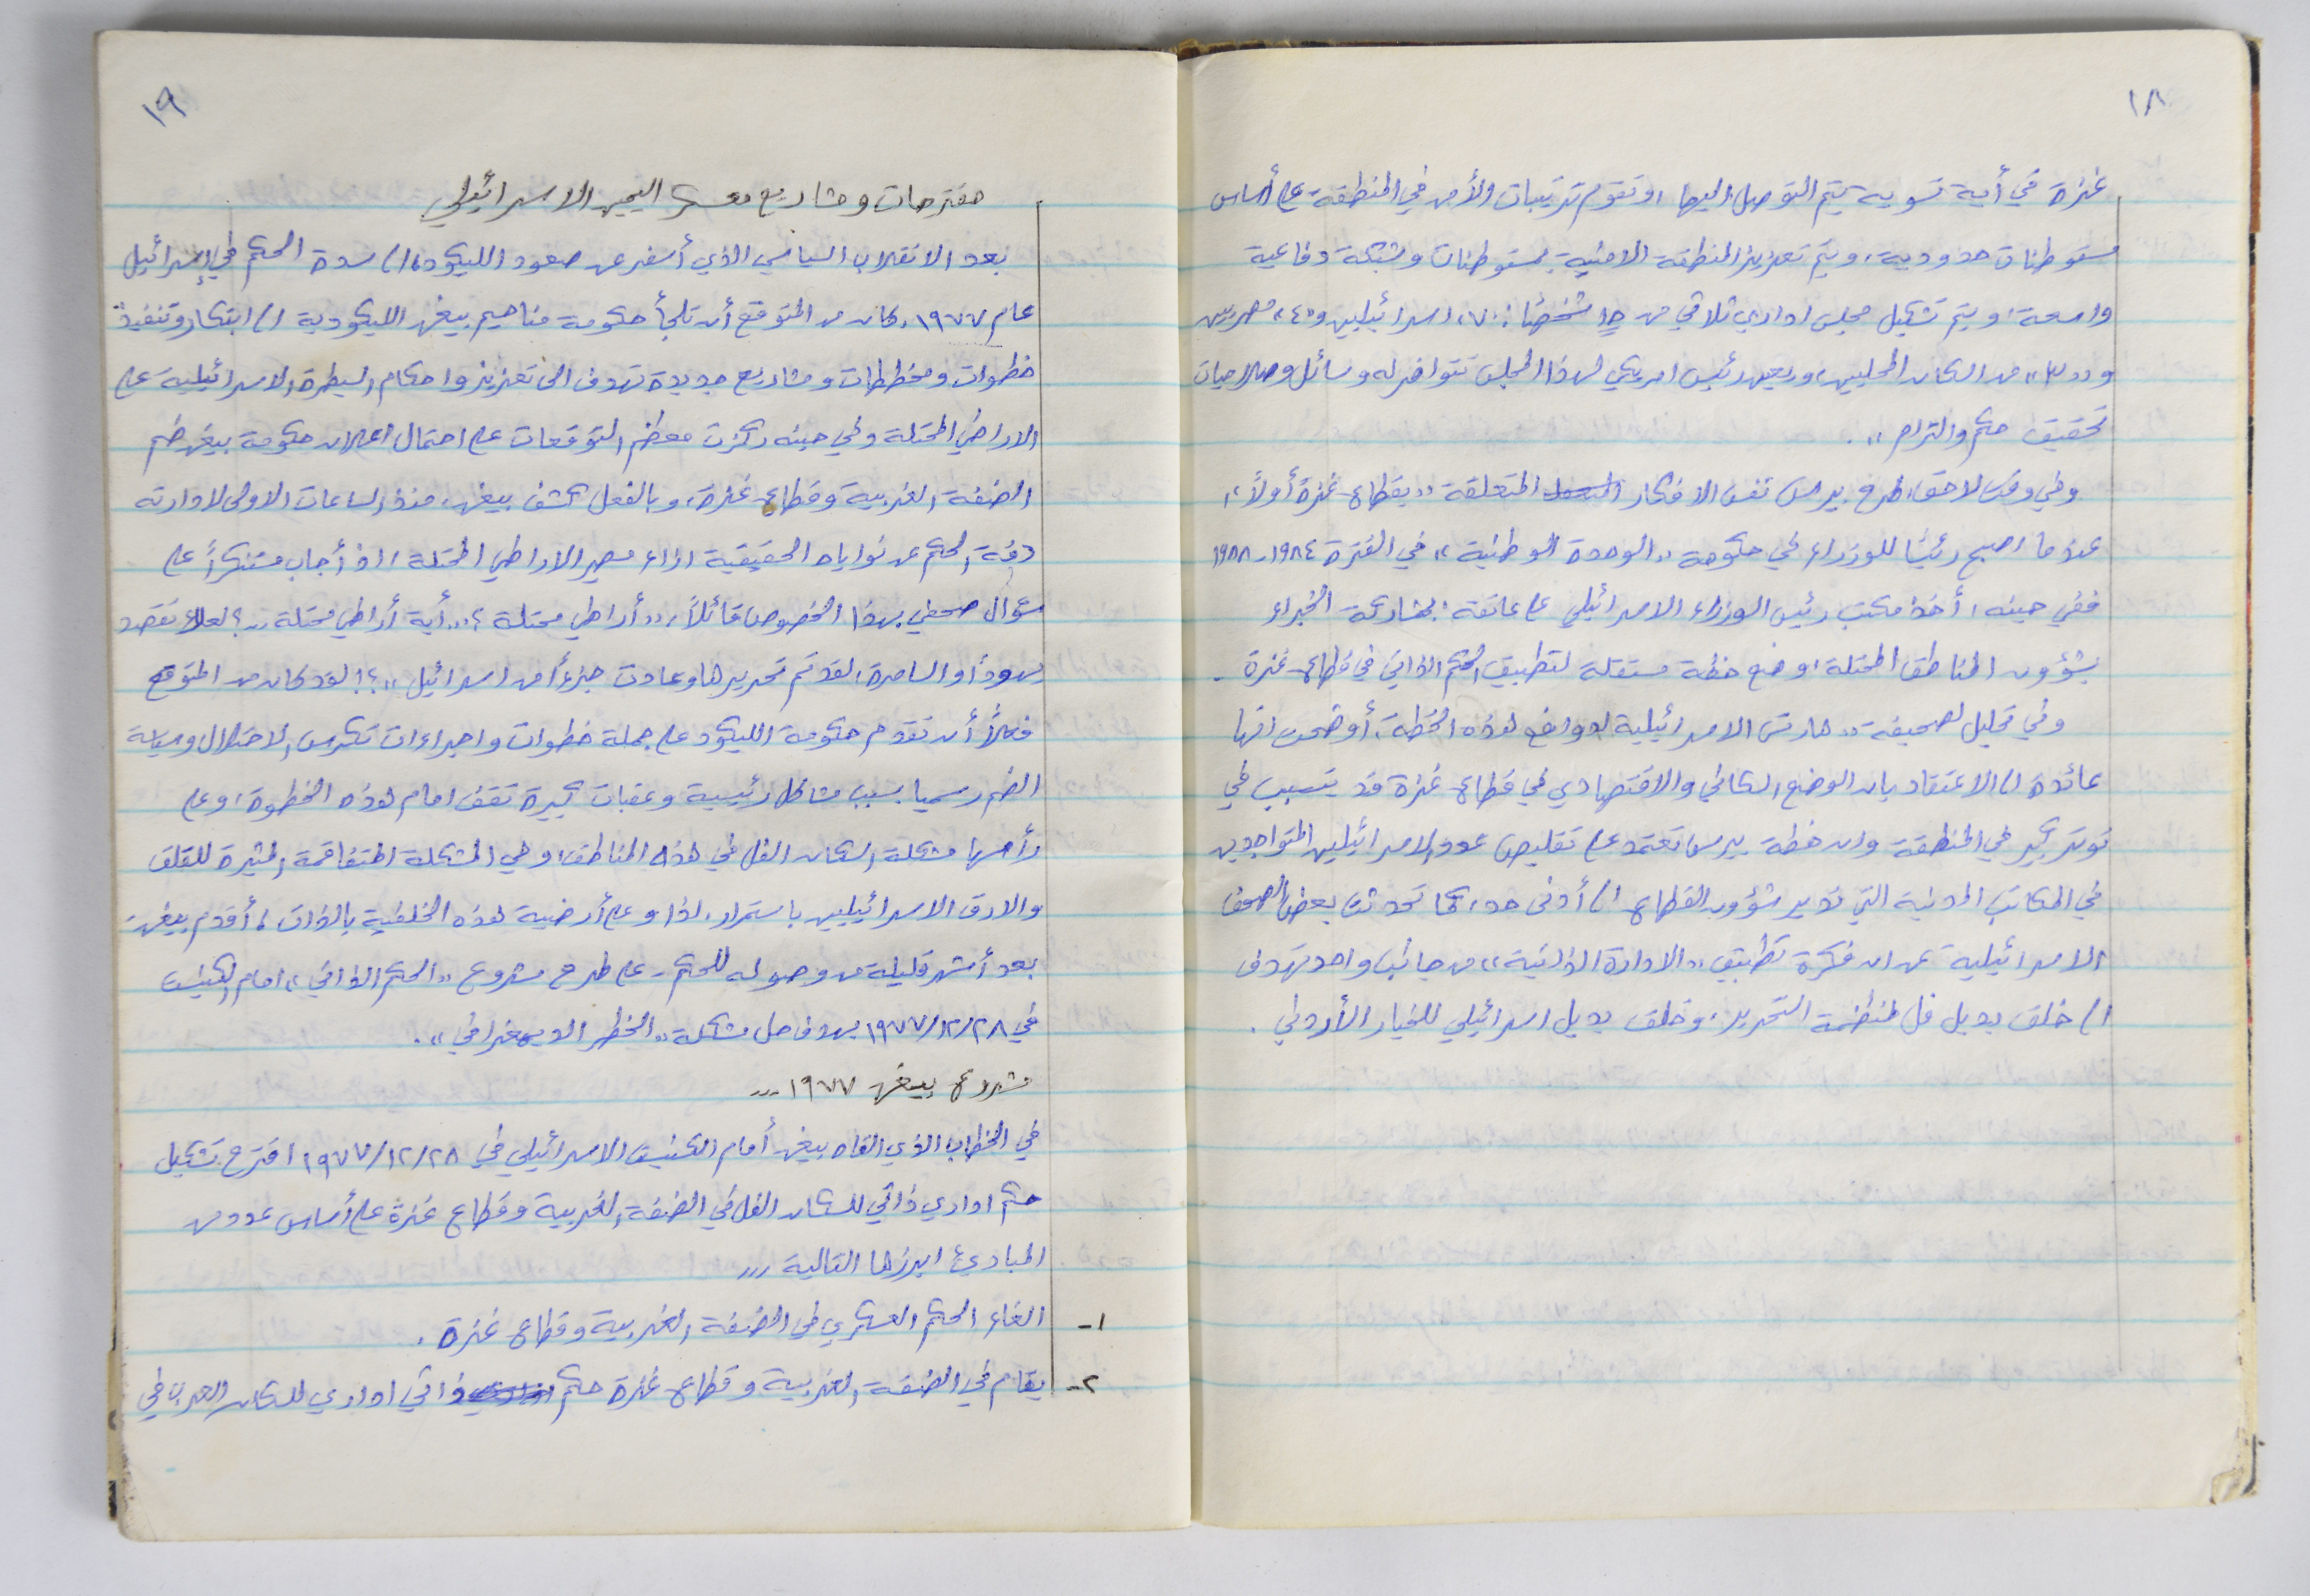 ١٨
غزة في أية تسوية يتم التوصل اليها، وتقوم ترتيبات الأمن في المنطقة على أساس
مستوطنات حدودية، ويتم تعزيز المنطقة الامنية بمستوطنات وشبكة دفاعية
واسعة، ويتم تشكيل مجلس اداري ثلاثي من شخصًا: «٧» اسرائيليين و«٤» مصريين
و«٣» من السكان المحليين، ويعين رئيس امريكي لهذا المجلس تتوافر له وسائل وصلاحيات
تحقيق حكم والتزام».
وفي وقت لاحق، طرح بيرس نفس الافكار المتعلقة «بقطاع غزة أولاً»،
عندما اصبح رئيسًا للوزراء في حكومة «الوحدة الوطنية» في الفترة ١٩٨٤-١٩٨٨
ففي حينه، أخذ مكتب رئيس الوزراء الاسرائيلي على عاتقه بمشاركة الخبراء
بشؤون المناطق المحتلة، وضع خطة مستقلة لتطبيق الحكم الذاتي في قطاع غزة.
وفي تحليل لصحيفة «هارتس الاسرائيلية لدوافع هذه الخطة، أوضحت انها
عائدة الى الاعتقاد بان الوضع السكاني والاقتصادي في قطاع غزة قد يتسبب في
توتر كبير في المنطقة وان خطة بيرس تعتمد على تقليص عدد الاسرائيليين المتواجدين
في المكاتب المدنية التي تدير شؤون القطاع الى أدنى حد، كما تحدثت بعض الصحف
الاسرائيلية عن ان فكرة تطبيق «الادارة الذاتية» من جانب واحد تهدف
الى خلق بديل فل لمنظمة التحرير، وخلق بديل اسرائيلي للخيار الأردني.
١٩
مقترحات ومشاريع معسكر اليمين الاسرائيلي
بعد الانقلاب السياسي الذي أسفر عن صعود الليكود الى سدة الحكم في إسرائيل
عام ١٩٧٧، كان من المتوقع أن تلجأ حكومة مناحيم بيغن الليكودية الى ابتكار وتنفيذ
خطوات ومخططات ومشاريع جديدة تهدف الى تعزيز واحكام السيطرة الاسرائيلية على
الاراضي المحتلة وفي حينه ركزت معظم التوقعات على احتمال اعلان حكومة بيغن ضم
الضفة الغربية وقطاع غزة، وبالفعل كشف بيغن، منذ الساعات الاولى لادارته
دفة الحكم عن نواياه الحقيقية ازاء مصير الاراضي المحتلة، اذ أجاب مستنكراً على
سؤال صحفي بهذا الخصوص قائلاً، «أراضي محتلة؟.. أية أراضي محتلة..؟ لعلك تقصد
يهودا والسامرة، لقد تم تحريرها وعادت جزءاً من اسرائيل»؟! لقد كان من المتوقع
فعلاً أن تقدم حكومة الليكود على جملة خطوات واجراءات تكرس الاحتلال وسياسة
الضم رسميا بسبب مشاكل رئيسية وعقبات كبيرة تقف امام هذه الخطوة، وعلى
رأسها مشكلة السكان الفل في هذه المناطق، وهي المشكلة المتفاقمة المثيرة للقلق
والارق الاسرائيليين باستمرار، لذا وعلى أرضية هذه الخلفية بالذات، أقدم بيغن-
بعد أشهر قليلة من وصوله للحكم - على طرح مشروع «الحكم الذاتي» امام الكنيست
في ١٩٧٧/١٢/٢٨ بهدف حل مشكلة «الخطر الديمغرافي».
مشروع بيغن ١٩٧٧...
في الخطاب الذي القاه بيغن أمام الكنيست الاسرائيلي في ١٩٧٧/١٢/٢٨ اقترح تشكيل
حكم اداري ذاتي للسكان الفل في الضفة الغربية وقطاع غزة على أساس عدد من
المبادئ ابرزها التالية...
١- الغاء الحكم العسكري في الضفة الغربية وقطاع غزة.
٢- يقام في الضفة الغربية وقطاع غزة حكم ذاتي اداري للسكان العرب في